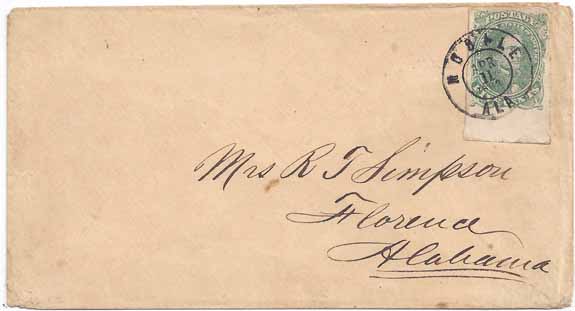 POSTAGE
MOBILE
APR
11
ALA
Mrs R T Simpson
Florence
Alabama